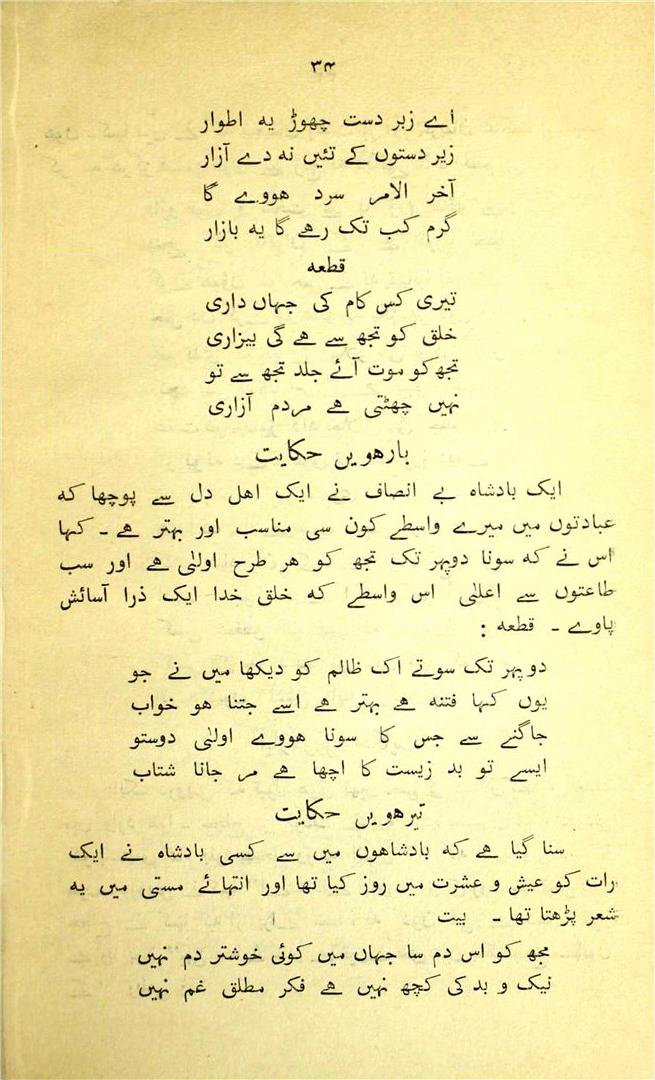 ۳۴
اے زبر دست چھوڑ یہ اطوار
زیر دستوں کے تئیں نہ دے آزار
آخر الامر سرد ہووے گا
گرم کب تک رہے گا یہ بازار
قطعہ
تیری کس کام کی جہاں داری
خلق کو تجھ سے ہے گی بیزاری
تجھ کو موت آئے جلد تجھ سے تو
نہیں چھٹتی ہے مردم آزاری
بارھویں حکایت
ایک بادشاہ بے انصاف نے ایک اھل دل سے پوچھا کہ
عبادتوں میں میرے واسطے کون سی مناسب اور بہتر ہے ۔ کہا
اس نے کہ سونا دوپہر تک تجھ کو ھر طرح اولیٰ ہے اور سب
طاعتوں سے اعلیٰ اس واسطے کہ خلق خدا ایک ذرا آسائش
پاوے ۔ قطعہ :
دوپہر تک سوتے اک ظالم کو دیکھا میں نے جو
یوں کہا فتنہ ہے بہتر ہے اسے جتنا ھو خواب
جاگنے سے جس کا سونا ھووے اولیٰ دوستو
ایسے تو بد زیست کا اچھا ہے مر جانا شتاب
تیرھویں حکایت
سنا گیا ہے کہ بادشاھوں میں سے کسی بادشاہ نے ایک
رات کو عیش و عشرت میں روز کیا تھا اور انتہائے مستی میں یہ
شعر پڑھتا تھا ۔ بیت
مجھ کو اس دم سا جہاں میں کوئی خوشتر دم نہیں
نیک و بد کی کچھ نہیں ہے فکر مطلق غم نہیں